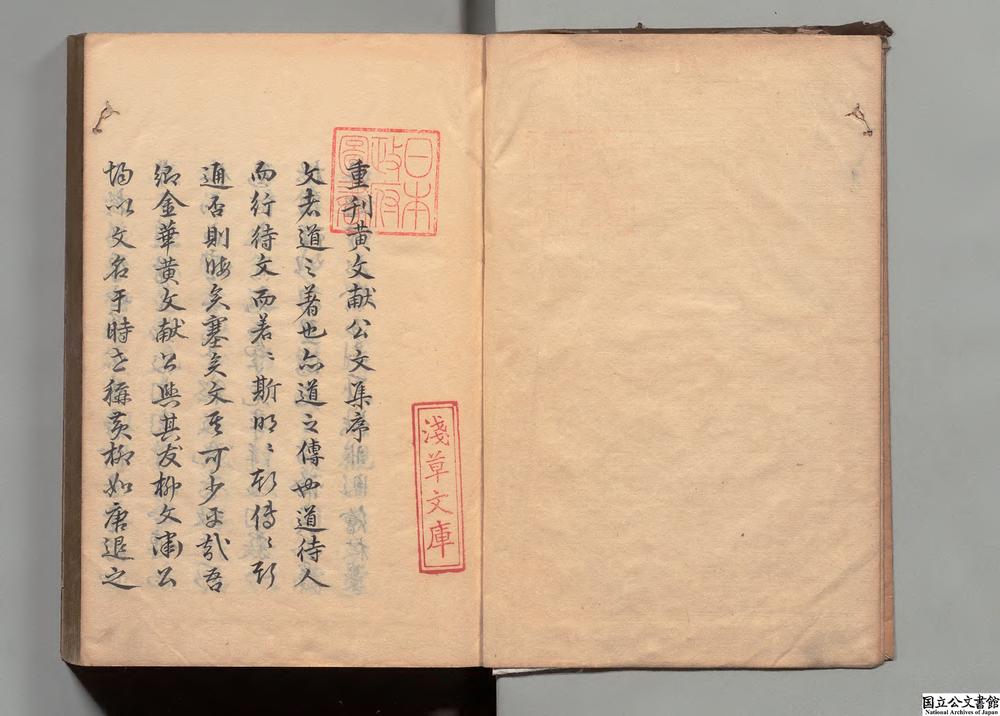 日本
政府
圖書
重刊黃文献公文集序
文者道之著也亦道之傳也道待人
而行待文而著〻斯明〻斯傳〻斯
通否則晦矣塞矣文其可少乎哉吾
鄉金華黃文献公與其友柳文肅公
均以文名于時世稱黃柳如唐退之
淺草文庫
国立公文書館
National Archives of Japan